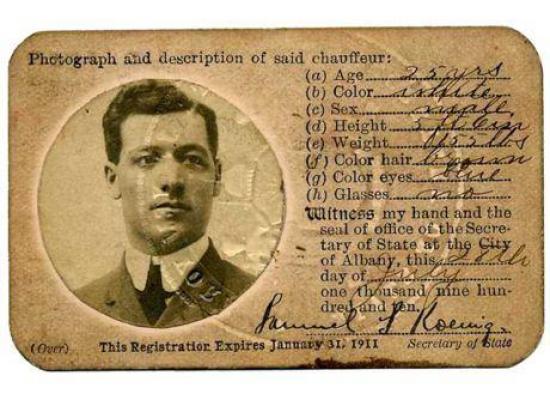 Photograph and description of said chauffeur:
(a) Age 25 yrs
(b) Color white
(c) Sex male
(d) Height
(e) Weight 165 lbs
(f) Color hair brown
(g) Color eyes blue
(h) Glasses no
Witness my hand and the
seal of office of the Secre-
tary of State at the City
of Albany, this 28th
day of July
one thousand nine hun-
dred and ten.
Samuel S Koenig
(Over) This Registration Expires January 31, 1911 Secretary of State